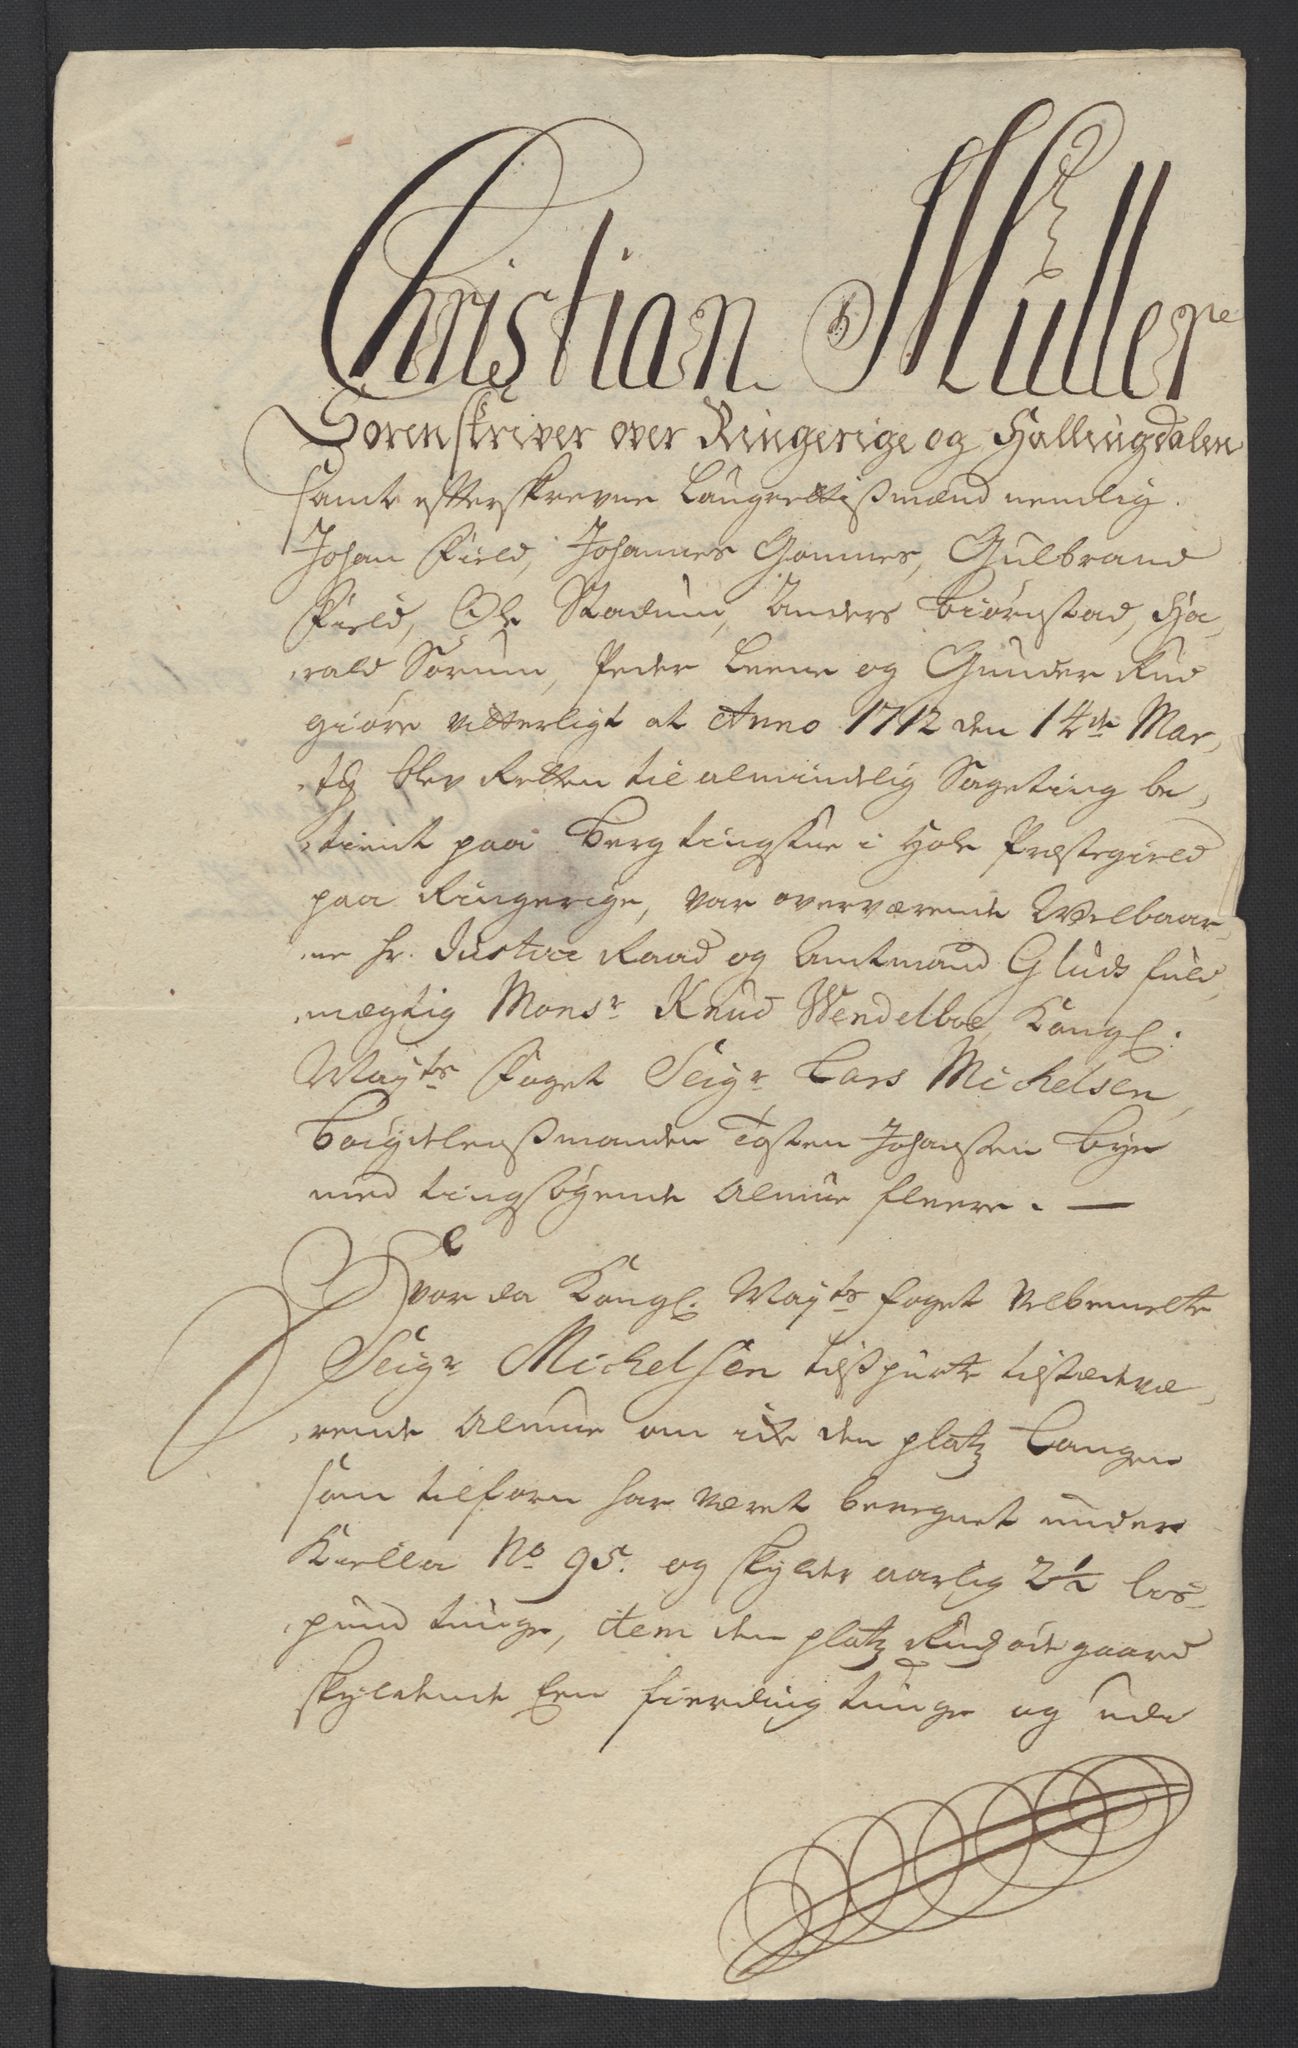 Christian Müller
Sorenskriver over Ringerige og Hallingdalen
samt efterskrevne Laugrettißmænd nemlig.
Johan Field, Johannes Gommes, Gulbrand
Field, Ole Stadum, Anders Biørnstad, Ha,
rald Sørum, Peder Leene og Gunder Rud
giøre vitterligt at Anno 1712 den 14de Mar,
ty blev Retten til almindelig Sageting be,
tient paa Berg tingstue i Hole Præstegield
paa Ringerige, var overværende Welbaar,
ne Hr. Justice Raad og Amtmand Gluds fuld,
mægtig Monsr Knud Wendelboe, Kongl.
Mayts Foget Seigr Lars Michelsen,
Bøigdelenßmanden Tosten Johansen Bye
med tingsøgende Almue fleere. —
Hvor da Kongl. Mayts foget Velbemelte
Seigr Michelsen tilspurte tilstædevæ,
rende Almue om icke den platz Langen
som tilforn har været beregnet under
Kiella No 95. og skylder aarlig 2½ lis-
pund tunge, item den platz Rudzødegaard
skyldende Een fierding tunge og udi